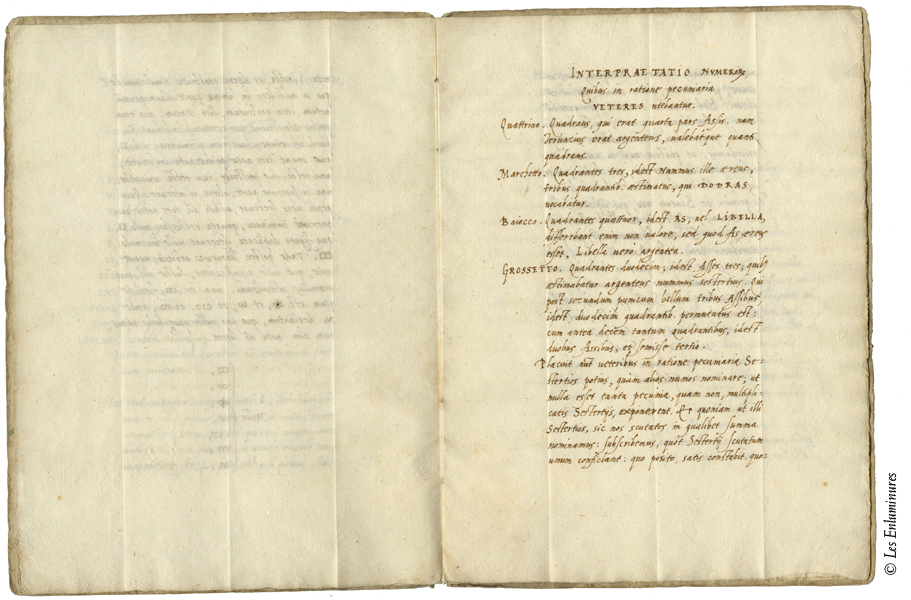 INTERPRAETATIO NVMERORꝜ
Quibus in ratione pecuniaria
VETERES utebantur.
Quattrino. Quadrans, qui erat quarta pars Assis. nam
Teruncius erat argenteus, ualebatque quanti
quadrans.
Marchetto. Quadrantes tres, idest Nummus ille æreus,
tribus quadrantib. æstimatus, qui DODRAS
uocabatur.
Baiocco. Quadrantes quattuor, idest AS, uel LIBELLA,
differebant enim non ualore, sed quod As æreus
esset, Libella uero argentea.
GROSSETTO. Quadrantes duodecim, idest Asses tres, quibꝫ
æstimabatur argenteus nummus sestertius. Qui
post secundum punicum bellum tribus Assibus,
idest duodecim quadrantib. permutatus est:
cum antea decem tantum quadrantibus, idest
duobus Assibus, et semisse tertio.
Placuit aut ueteribus in ratione pecuniaria Se-
stertios potius, quam alios numos nominare; ut
nulla esset tanta pecunia, quam non, multipli-
catis Sestertijs, exponerent. Et quoniam ut illi
Sestertios, sic nos scutatos in qualibet summa
nominamus: subscribemus, quot Sestertij scutatum
unum conficiant: quo posito, satis constabit, quo-
© Les Enluminures